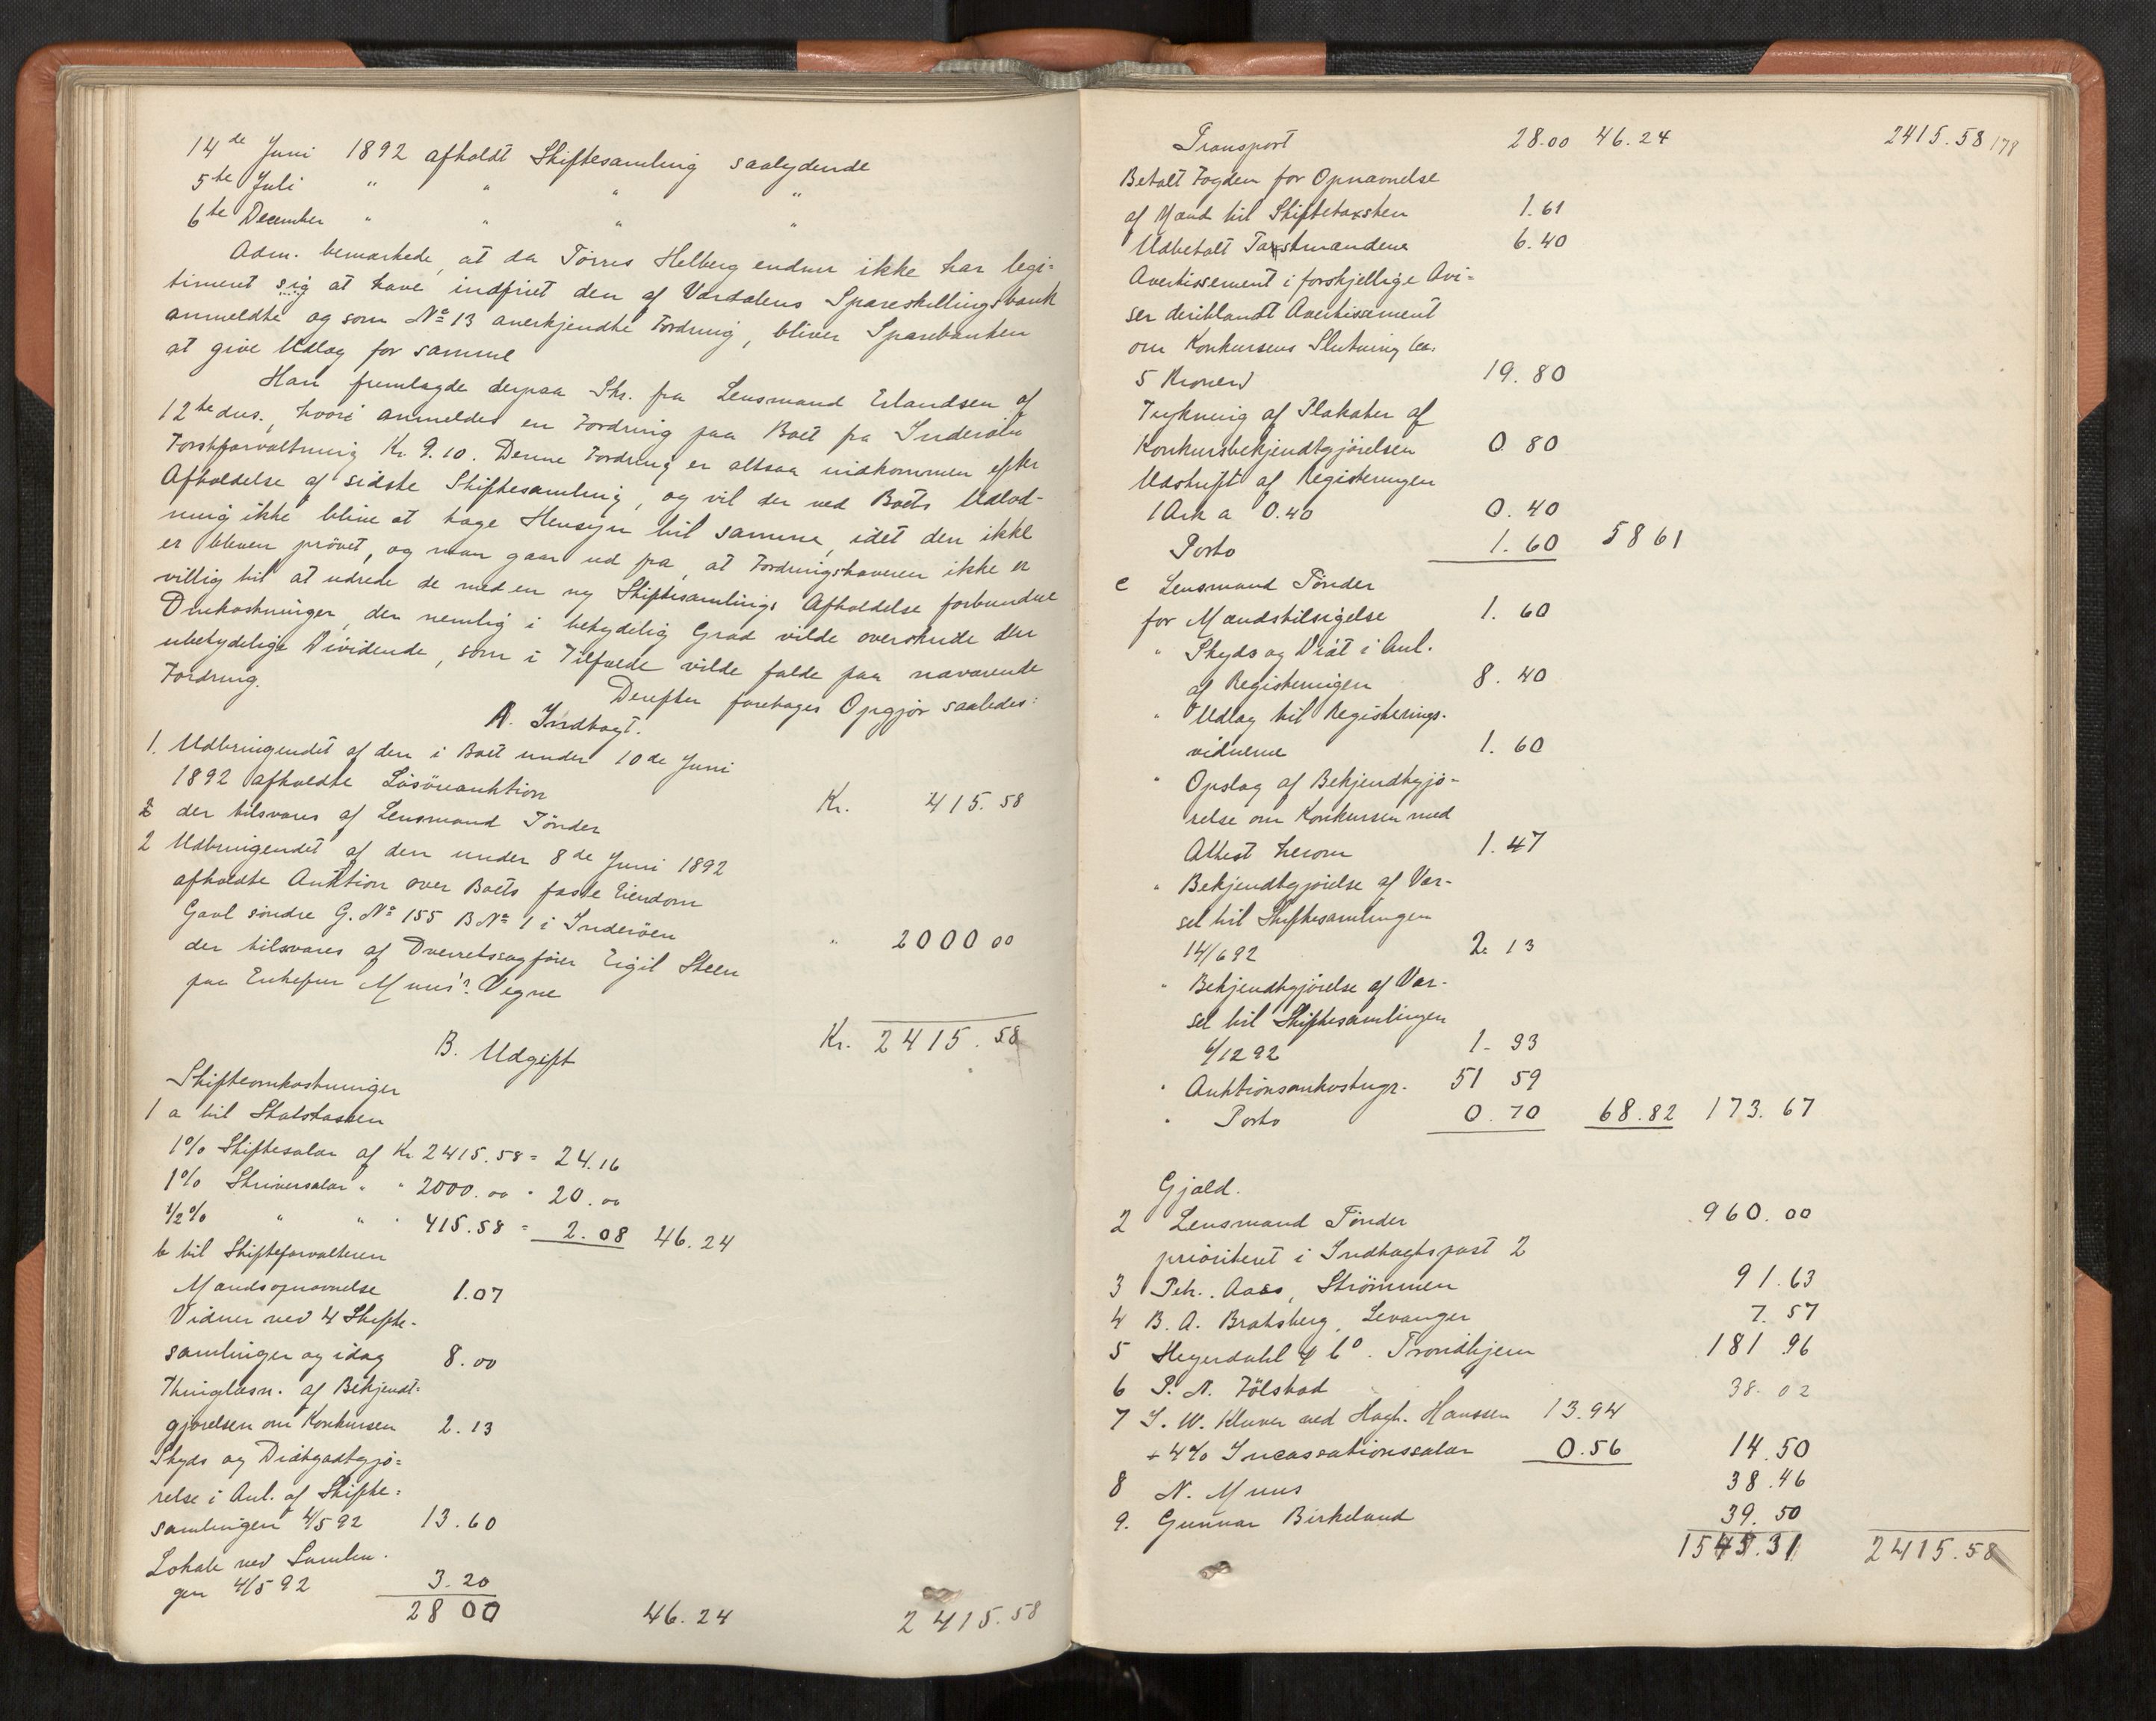 14de Juni 1892 afholdt Skiftesamling saalydende
5te Juli " " " "
6te December " " " "
Adm. bemærkede, at da Törres Helberg endnu ikke har legi-
timeret sig at have indfriet den af Værdalens Spareskillingsbank
anmeldte og som No 13 anerkjendte Fordring, bliver Sparebanken
at give Udlæg for samme
Han fremlagde derpaa Skr. fra Lensmand Erlandsen af
12te dns., hvori anmeldes en Fordring paa Boet fra Inderöens
Forstforvaltning Kr 9.10. Denne Fordring er altsaa indkommen efter
Afholdelse af sidste Skiftesamling, og vil der ved Boets Udlod-
ning ikke blive at tage Hensyn til samme, idet den ikke
er bleven prövet, og man gaar ud fra, at Fordringshaveren ikke er
villig til at udrede de med en ny Skiftesamlings Afholdelse forbundne
Omkostninger, der nemlig i betydelig Grad vilde overskride den
ubetydelige Dividende, som i Tilfælde vilde falde paa nævnte
Fordring.
Derefter foretages Opgjör saaledes:
A. Indtægt.
1. Udbringendet af den i Boet under 10de Juni
1892 afholdte Lösöreauktion Kr. 415.58
der tilsvares af Lensmand Tönder
2 Udbringendet af den under 8de Juni 1892
afholdte Auktion over Boets faste Eiendom
Gavl söndre G. No 155 B No 1 i Inderöen " 2000 00
der tilsvares af Overretssagförer Eigil Steen
paa Enkefru Muus' Vegne
Kr. 2415.58
B. Udgift
Skifteomkostninger
1 a til Statskassen
1% Skiftesalær af Kr 2415.58 = 24.16
1% Skriversalær " " 2000.00 " 20.00
1/2% " " " 415.58 = 2.08 46.24
b til Skifteforvalteren
Mandsopnævnelse 1.07
Vidner ved 4 Skifte-
samlinger og idag 8.00
Thinglæsn. af Bekjendt-
gjörelsen om Konkursen 2.13
Skyds og Diætgodtgjö-
relse i Anl. af Skifte-
samlingen 4/5 92 13.60
Lokale ved Samlin-
gen 4/5 92 3.20
28 00 46.24 2415.58
Transport 28.00 46.24 2415.58 178
Betalt Fogden for Opnævnelse
af Mænd til Skiftetaxsten 1.61
Udbetalt Taxstmændene 6.40
Avertissement i forskjellige Avi-
ser deriblandt Avertissement
om Konkursens Slutning ca.
5 Kroner 19.80
Trykning af Plakater af
Konkursbekjendtgjörelsen 0 80
Udskrift af Registeringen
1 Ark a 0.40 0.40
Porto 1.60 58 61
c Lensmand Tönder
for Mandstilsigelse 1.60
" Skyds og Diæt i Anl.
af Registeringen 8.40
" Udlæg til Registerings-
vidnerne 1.60
" Opslag af Bekjendtgjö-
relse om Konkursen med
Attest herom 1.47
" Bekjendtgjörelse af Var-
sel til Skiftesamlingen
14/6 92 2.13
" Bekjendtgjörelse af Var-
sel til Skiftesamlingen
6/12 92 1-33
" Auktionsomkostngr. 51 59
" Porto 0.70 68.82 173.67
Gjæld.
2 Lensmand Tönder 960.00
prioriteret i Indtægtspost 2
3 Petr. Aas, Strömmen 91.63
4 B. A. Bratsberg, Levanger 7.57
5 Heyerdahl & Co. Trondhjem 181 96
6 P. N. Fölstad 38.02
7 I. W. Kluver ved Hagb. Hanssen 13.94
+ 4% Incassationssalær 0.56 14.50
8 N. Muus 38.46
9. Gunnar Birkeland 39.50
1545.31 2415.58